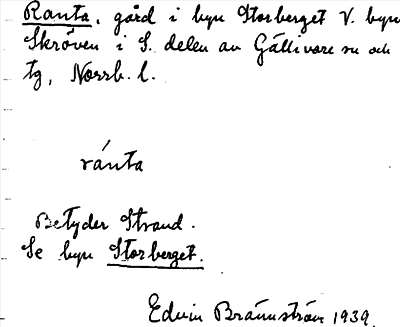 Ranta, gård i byn Storberget V. byn
Skröven i S. delen av Gällivare sn och
tg, Norrb. l.
ránta
Betyder Strand.
Se byn Storberget.
Edvin Brännström 1939.